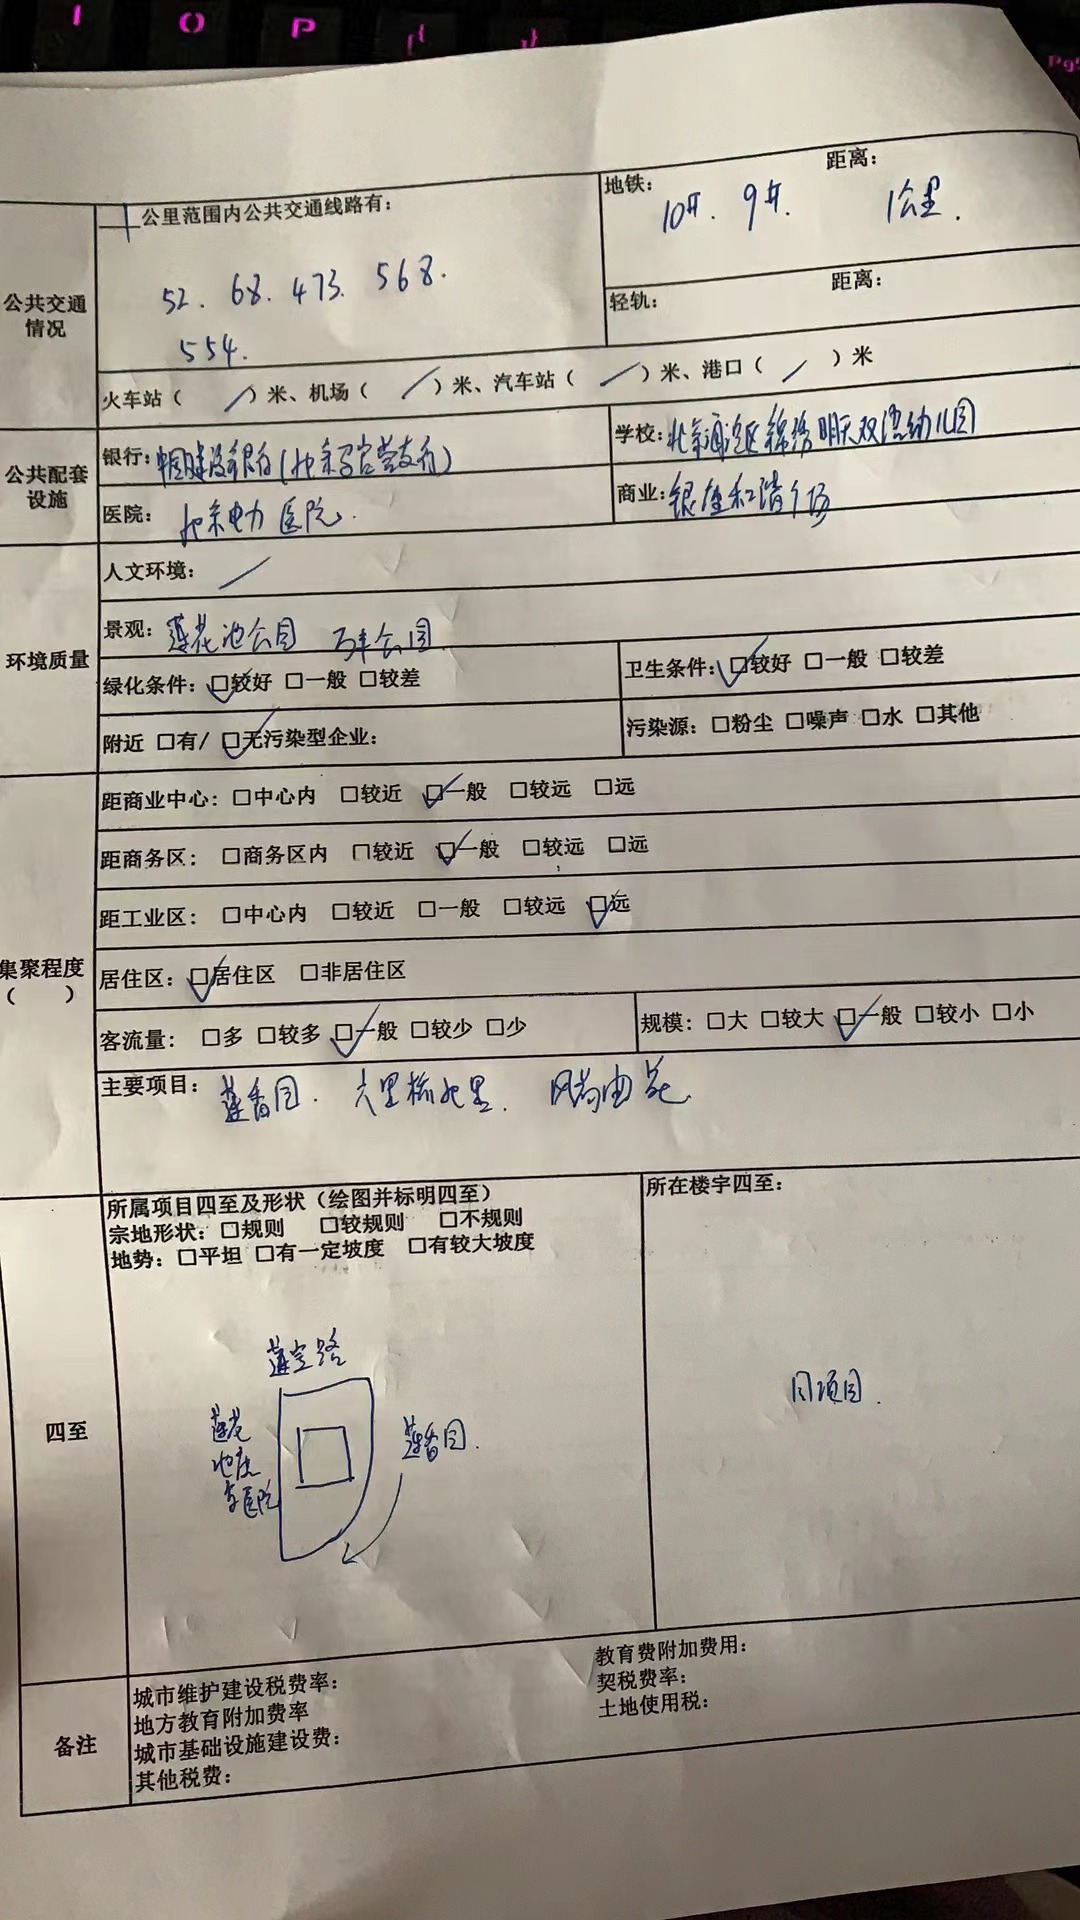 I O P
公共交通情况
公里范围内公共交通线路有：
52. 68. 473. 568.
554.
地铁： 距离：
10号. 9号. 1公里.
轻轨： 距离：
火车站（ ／ ）米、机场（ ／ ）米、汽车站（ ／ ）米、港口（ ／ ）米
公共配套设施
银行：中国建设银行（北京六官营支行）
学校：北京通泛区锦绣明天双语幼儿园
医院：北京电力医院.
商业：银座和谐广场
环境质量
人文环境：／
景观：莲花池公园 万丰公园
绿化条件：☑较好 □一般 □较差
卫生条件：☑较好 □一般 □较差
附近 □有/ ☑无污染型企业：
污染源：□粉尘 □噪声 □水 □其他
集聚程度（ ）
距商业中心：□中心内 □较近 ☑一般 □较远 □远
距商务区：□商务区内 □较近 ☑一般 □较远 □远
距工业区：□中心内 □较近 □一般 □较远 ☑远
居住区：☑居住区 □非居住区
客流量：□多 □较多 ☑一般 □较少 □少
规模：□大 □较大 ☑一般 □较小 □小
主要项目：莲香园. 六里桥北里. 风荷曲苑
四至
所属项目四至及形状（绘图并标明四至）
宗地形状：□规则 □较规则 □不规则
地势：□平坦 □有一定坡度 □有较大坡度
莲宝路
莲花
池康
医院
莲香园.
所在楼宇四至：
同项目.
备注
城市维护建设税费率：
地方教育附加费率
城市基础设施建设费：
其他税费：
教育费附加费用：
契税费率：
土地使用税：